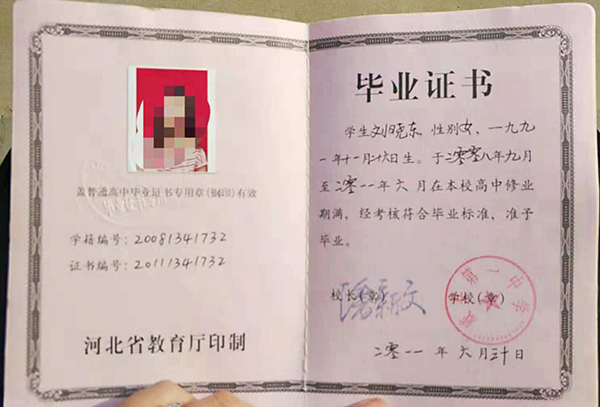 盖普通高中毕业证书专用章(钢印)有效
学籍编号: 20081341732
证书编号: 20111341732
河北省教育厅印制
毕业证书
学生刘晓东,性别女,一九九
一年十一月二十六日生。于二零零八年九月
至二零一一年六月在本校高中修业
期满,经考核符合毕业标准,准予
毕业。
校长(章) 学校(章)
第一中学
二零一一年六月三十日